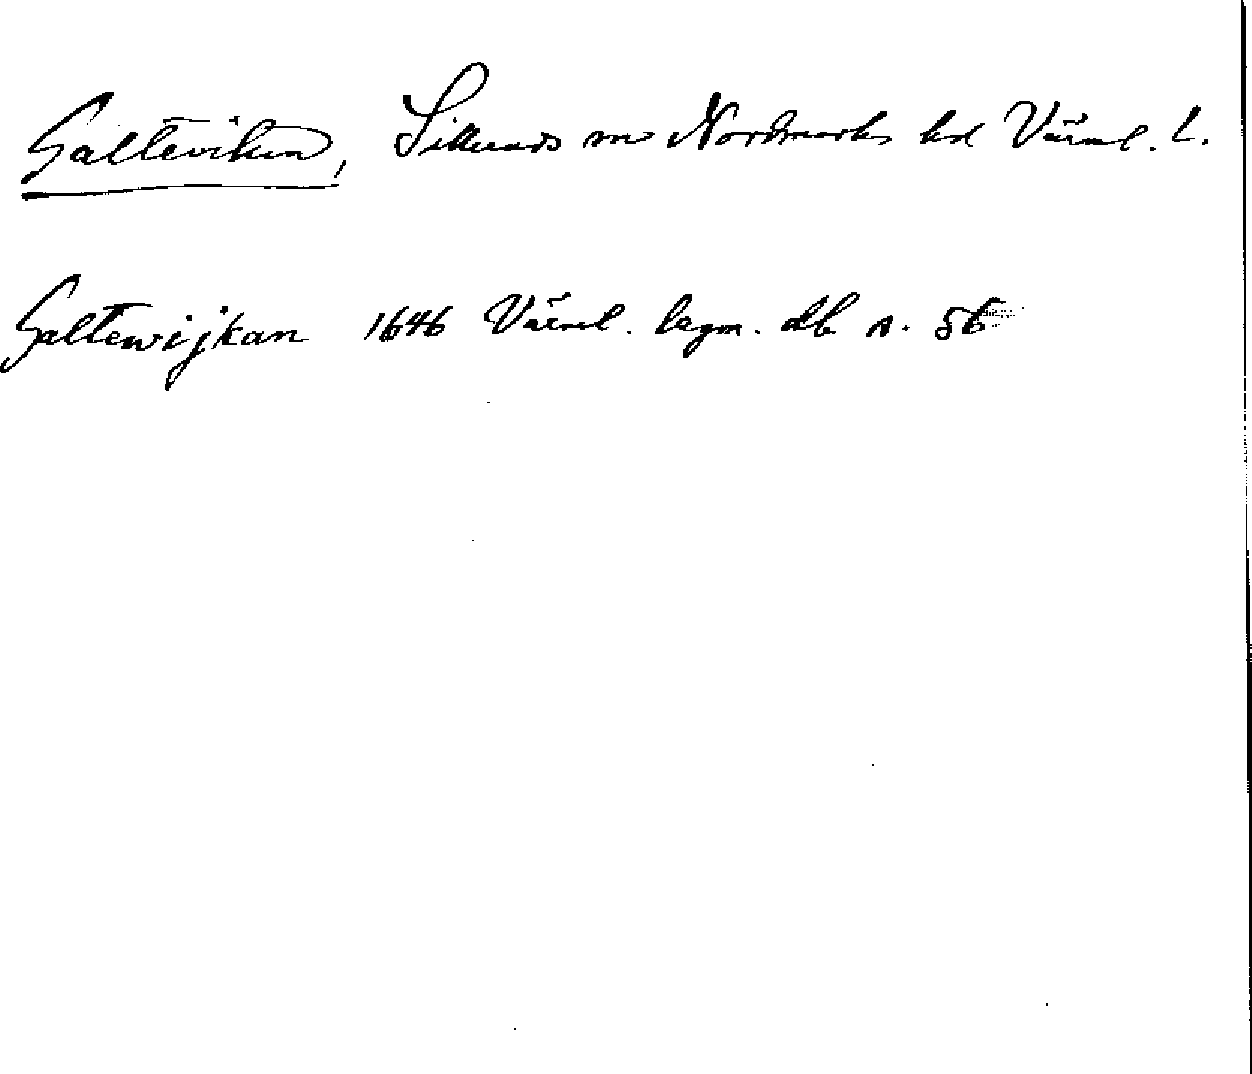 Galteviken, Silleruds sn Nordmarks hd Värml. L.
Galtewijkan 1646 Värml. lagm. db s. 56